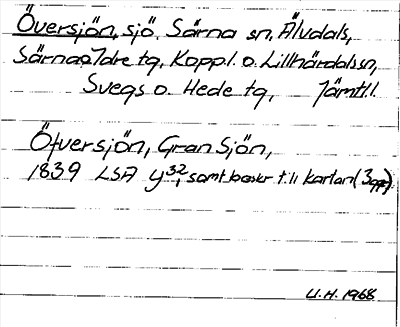 Översjön, sjö, Särna sn, Älvdals,
Särna o. Idre tg, Kopp.l. o. Lillhärdals sn,
Svegs o. Hede tg, Jämtl.l.
Öfversjön, Gran Sjön,
1839 LSA Y 32/1 samt beskr till kartan (3 ggr)
U.H. 1968